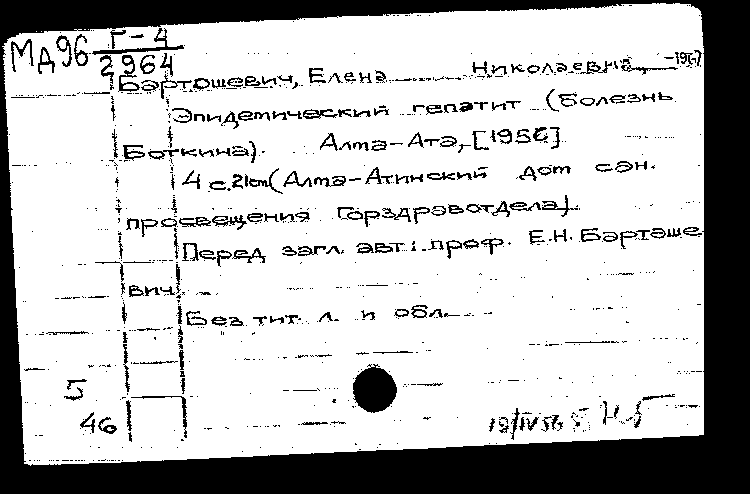 МД96 Г-4
2964
Бартошевич, Елена Николаевна,
Эпидемический гепатит (Болезнь
Боткина). Алма-Ата, [1956]
4 с. 21см (Алма-Атинский дом сан.
просвещения Горздравотдела)
Перед загл. авт.: проф. Е.Н. Барташе
вич
Без тит. л. и обл.
5
46